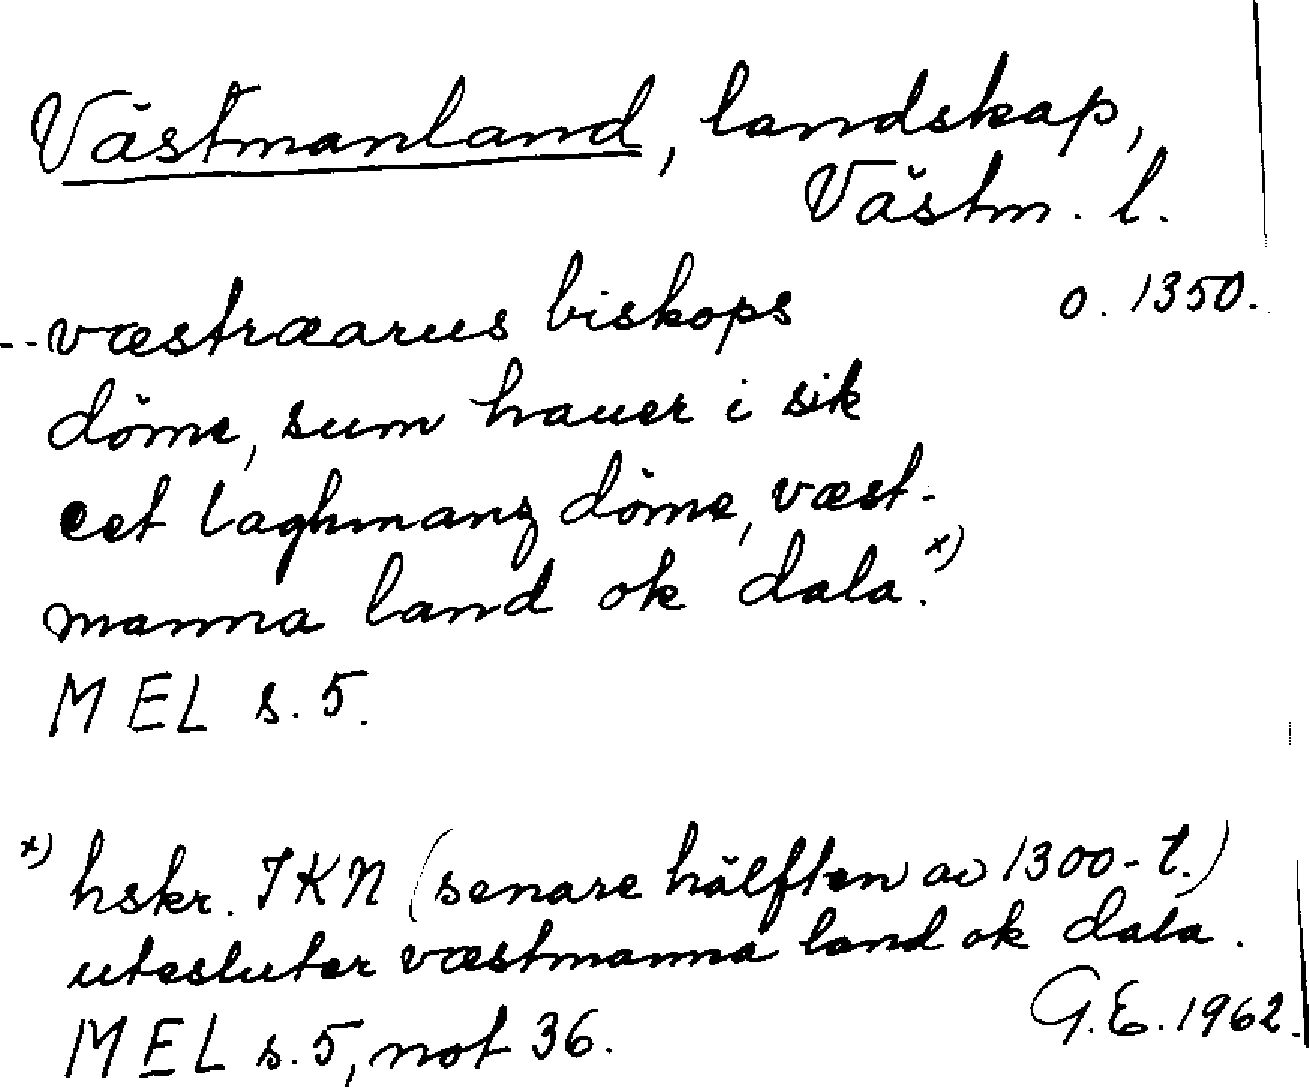 Västmanland, landskap,
Västm. l.
o. 1350.
-- væstræarus biskops
döme, sum hauer i sik
eet laghmanz döme, væst-
manna land ok dala. x)
MEL s. 5.
x) hskr. IKN (senare hälften av 1300-t.)
utesluter væstmanna land ok dala.
MEL s. 5, not 36.
G.E. 1962.